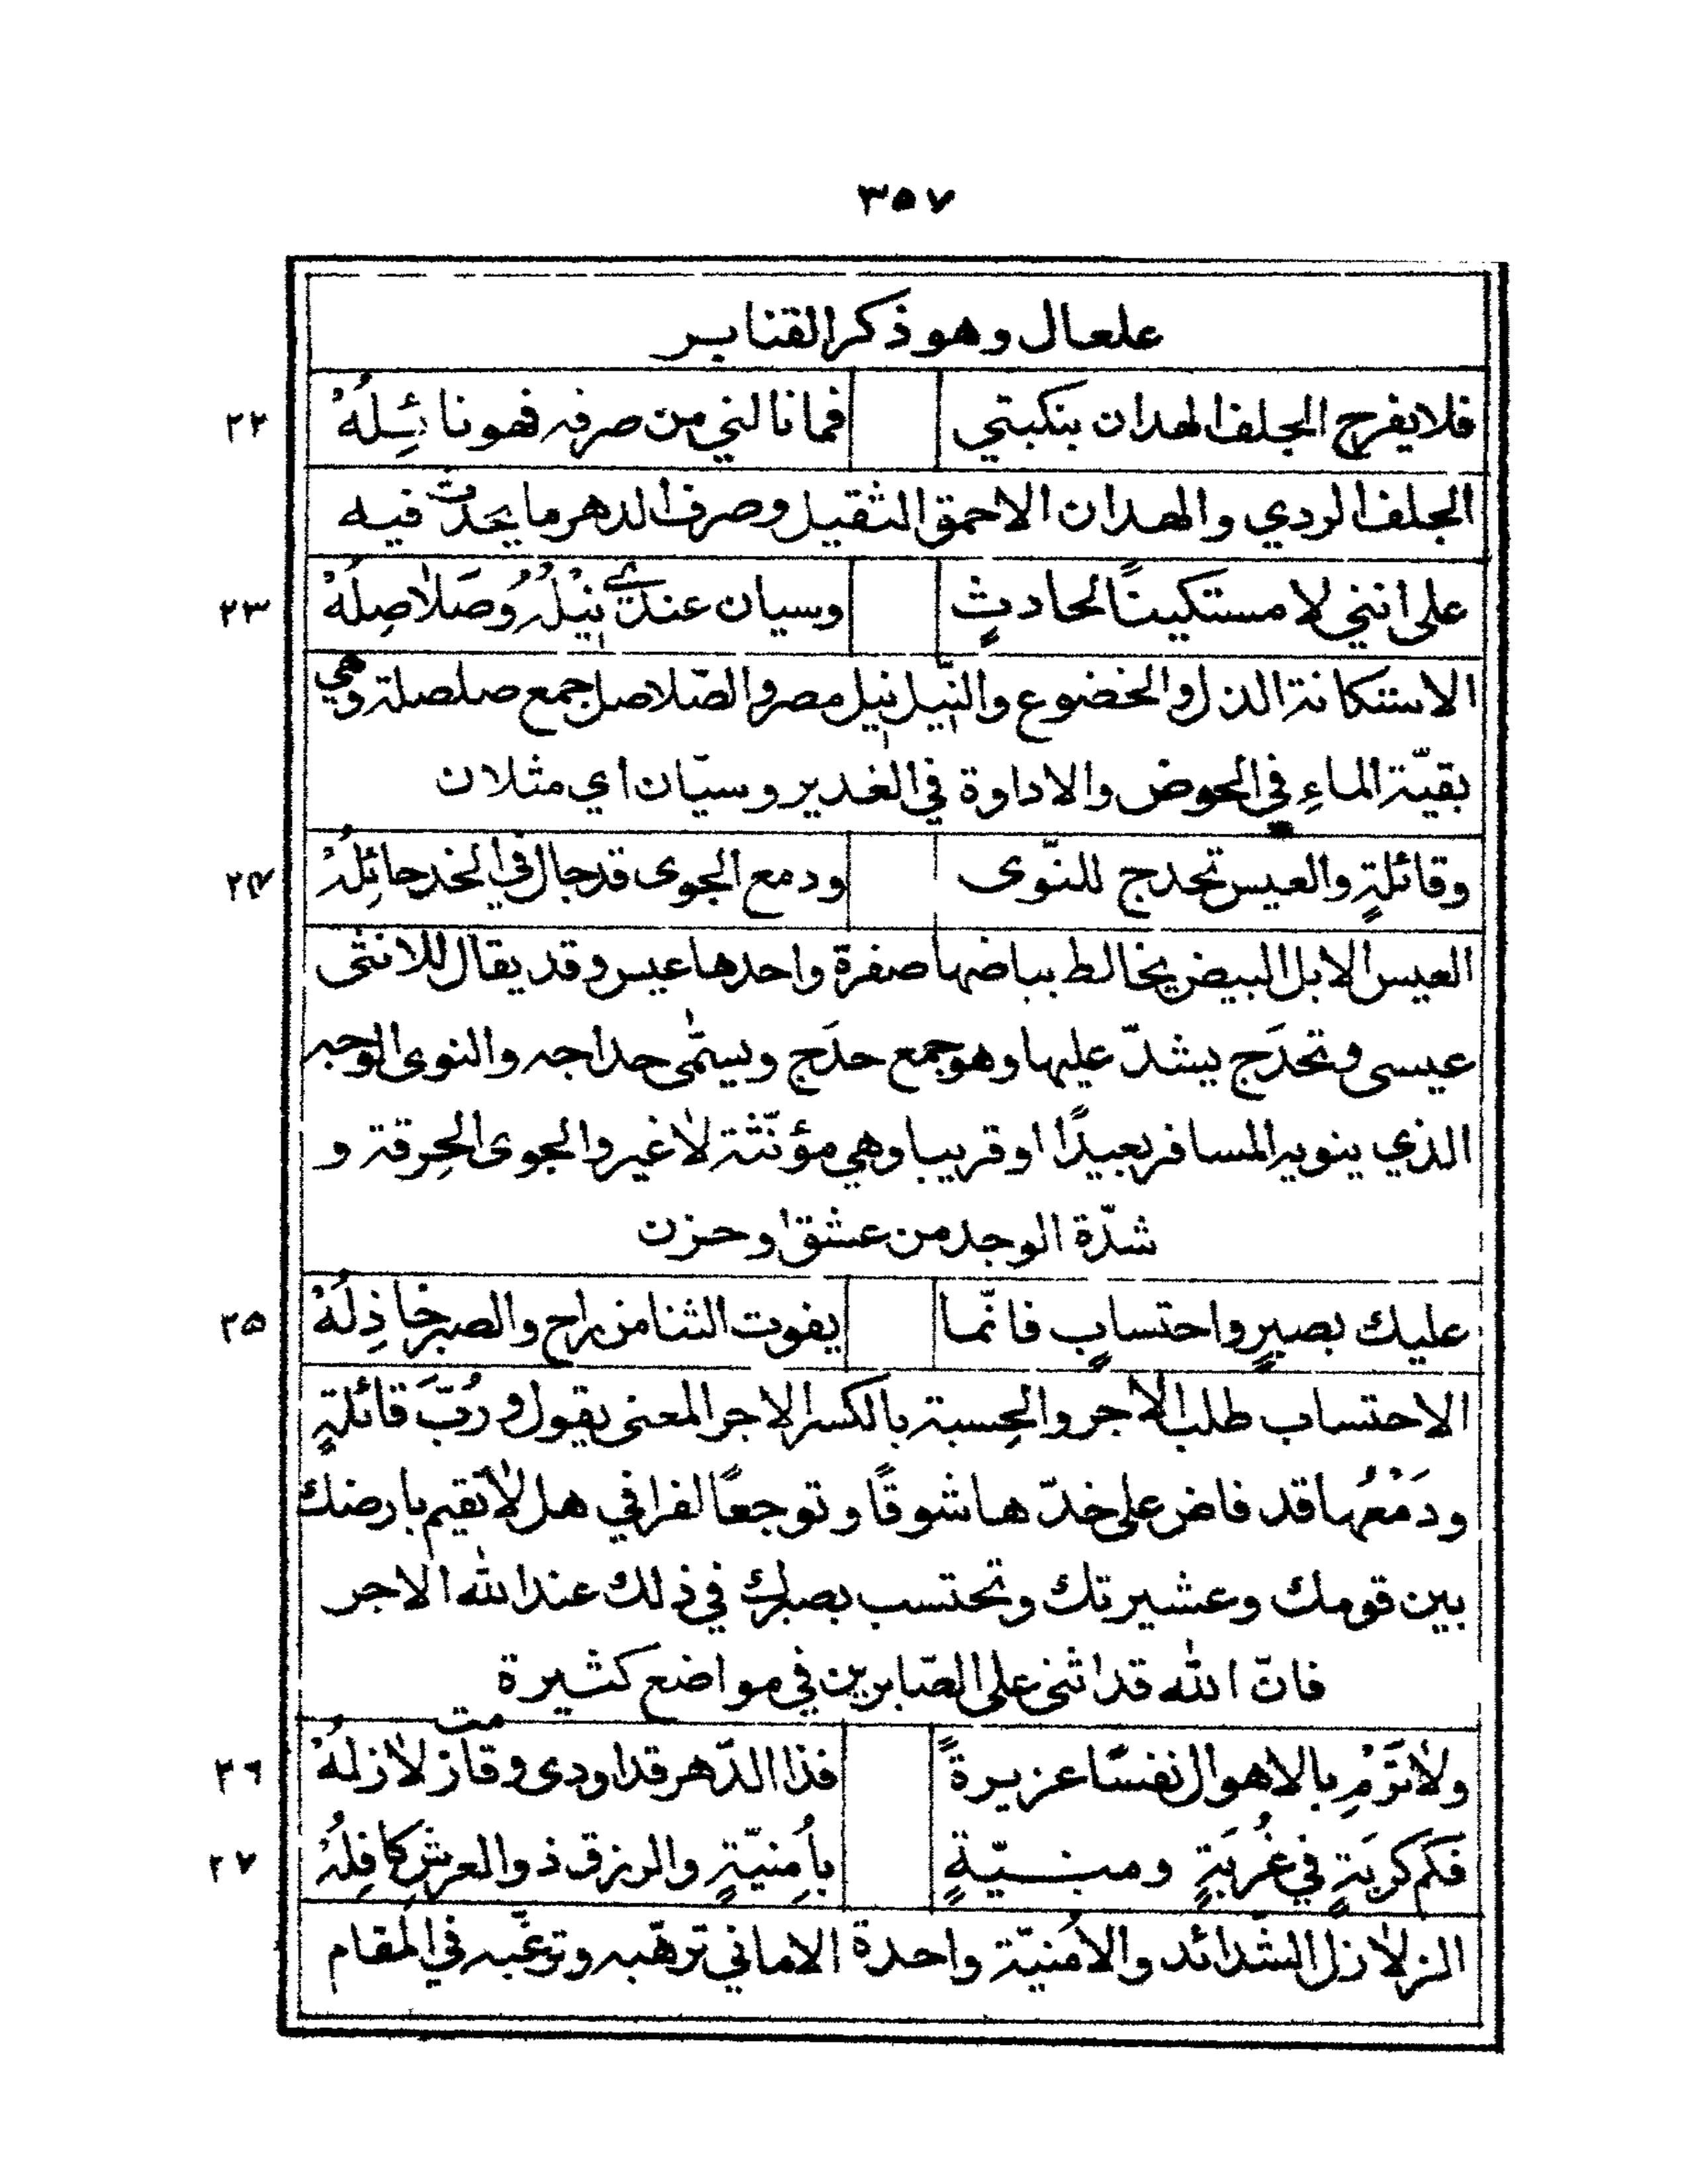 ٣٥٧
علعال وهو ذكر القنابر
فلا يفرح الجلف الهدان بنكبتي فما نالني من صرفه فهو نائِلُهْ ٢٢
الجلف الردي والهدان الاحمق الثقيل وصرف الدهر ما يحدث فيه
على انني لا مستكينًا لحادثٍ وسيان عندي نِيْلُهُ وصَلاصِلُهْ ٢٣
الاستكانة الذل والخضوع والنّيل نيل مصر والصّلاصل جمع صلصلة وهي
بقيّة الماءِ في الحوض والاداوة في الغدير وسيّان اي مثلان
وقائلةٍ والعيس تحدج للنّوى ودمع الجوى قد جال في الخد جائِلُهْ ٢٤
العيس الابل البيض يخالط بياضها صفرة واحدها عيس وقد يقال للانثى
عيسى وتحدَج يشدّ عليها وهو جمع حدَج ويسمّى حداجه والنوى الوجه
الذي ينويه المسافر بعيدًا او قريبا وهي مؤنّثة لا غير والجوى الحرقة و
شدّة الوجد من عشق او حزن
عليك بصبرٍ واحتسابٍ فانّما يفوت الثنا من راح والصبر خاذِلُهْ ٢٥
الاحتساب طلب الاجر والحِسبة بالكسر الاجر المعنى يقول ورُبَّ قائلةٍ
ودَمْعُها قد فاض على خدّها شوقًا وتوجعًا لفراقي هل لا تقيم بارضك
بين قومك وعشيرتك وتحتسب بصبرك في ذلك عند الله الاجر
فانّ الله قد اثنى على الصّابرين في مواضع كثيرة
ولا تَرْمِ بالاهوال نفسًا عزيرةً فذا الدّهر قد اودى وقامت زلازلهُ ٢٦
فَكم كربَةٍ في غُربَةٍ ومنيّةٍ بأُمنيّةٍ والرزق ذو العرش كافِلُهْ ٢٧
الزلازل الشّدائد والاُمنيّة واحدة الاماني ترهّبه وترغّبه في المُقام